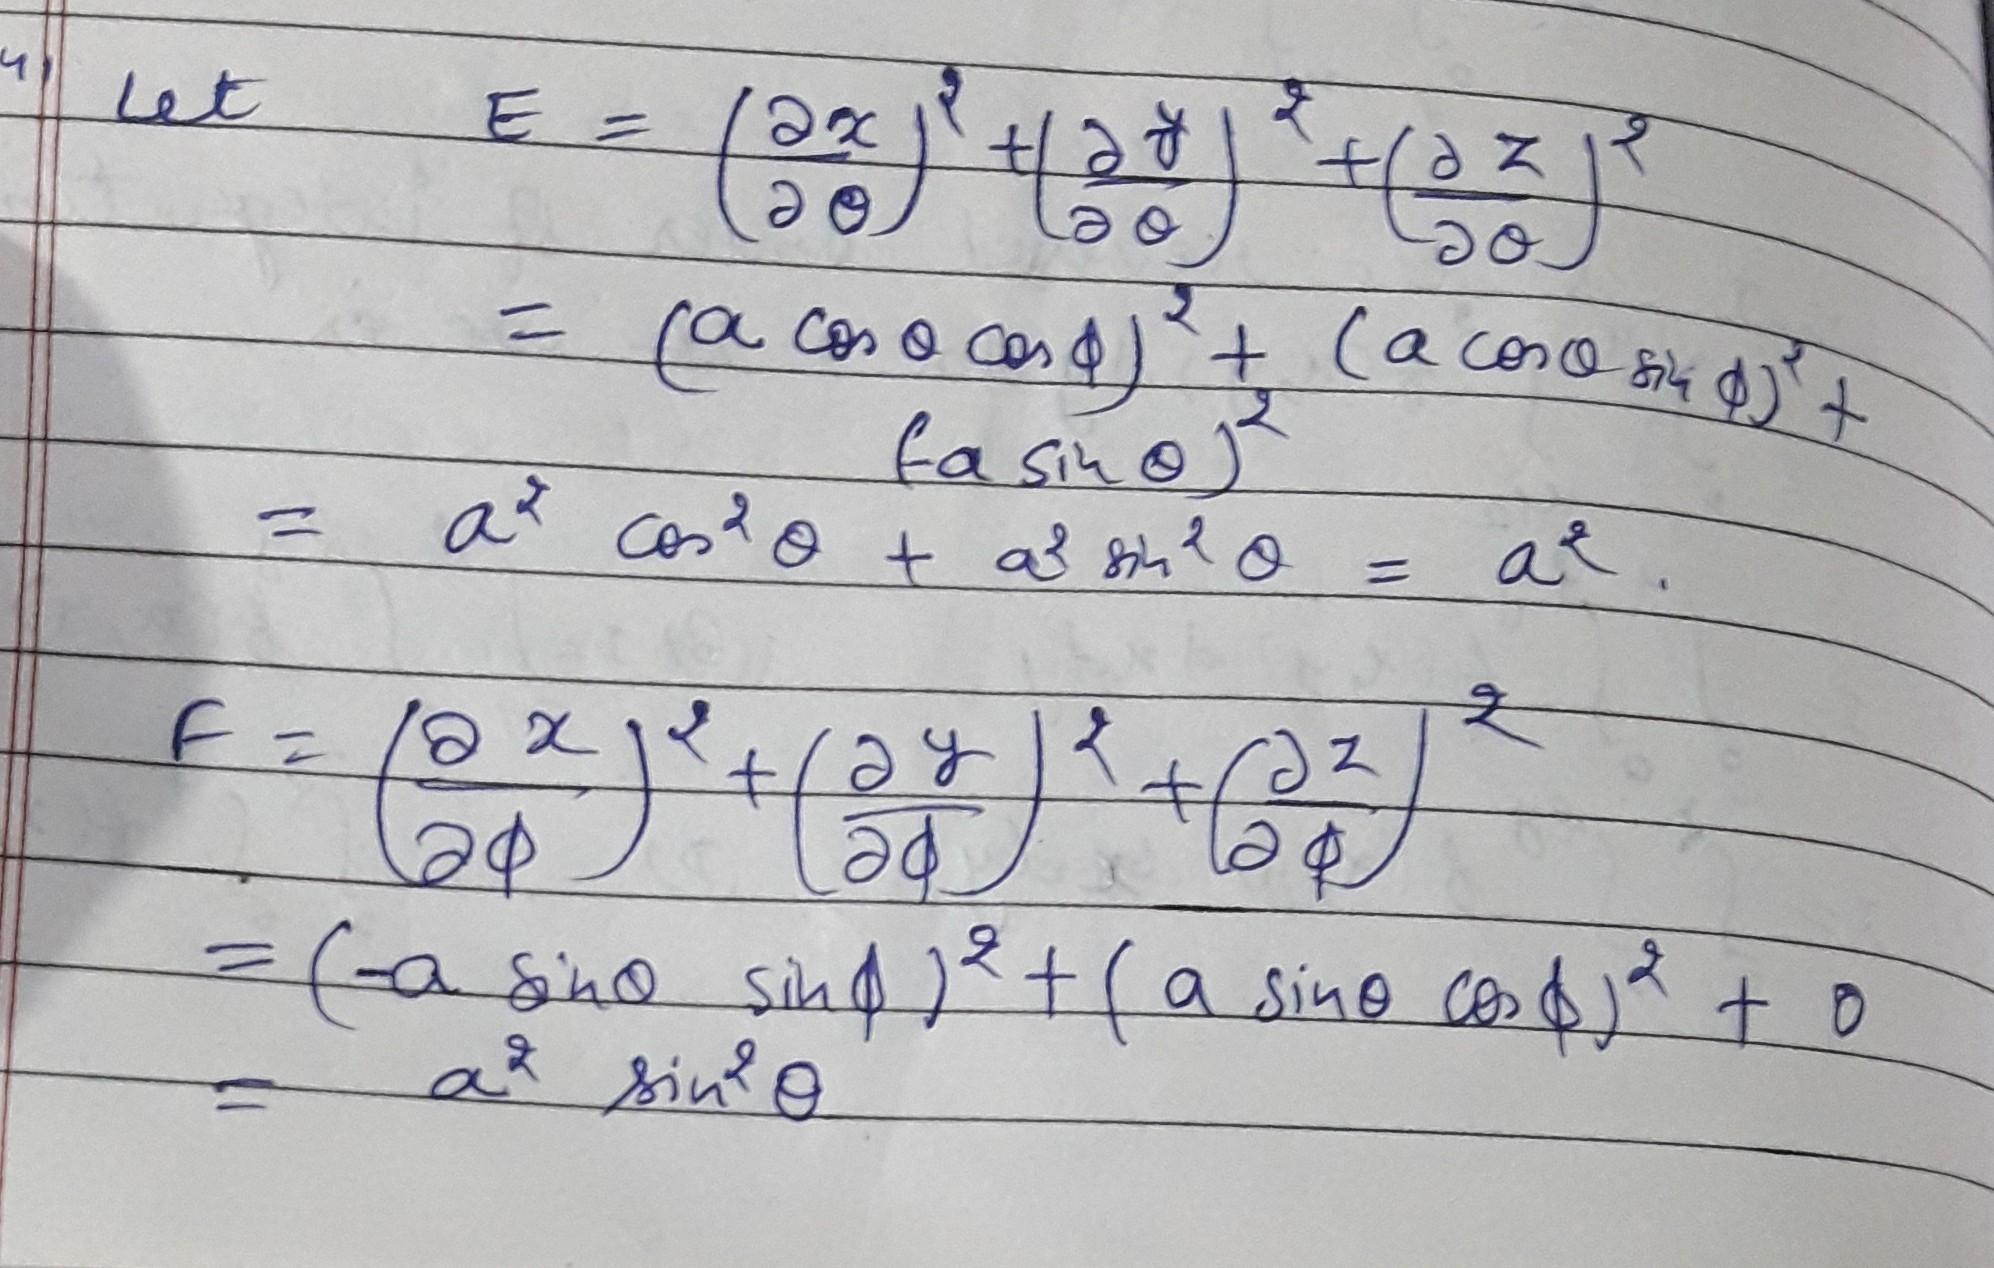 4) Let E = (∂x/∂θ)² + (∂y/∂θ)² + (∂z/∂θ)²
= (a cos θ cos ϕ)² + (a cos θ sin ϕ)² +
(-a sin θ)²
= a² cos² θ + a² sin² θ = a².
F = (∂x/∂ϕ)² + (∂y/∂ϕ)² + (∂z/∂ϕ)²
= (-a sin θ sin ϕ)² + (a sin θ cos ϕ)² + 0
= a² sin² θ